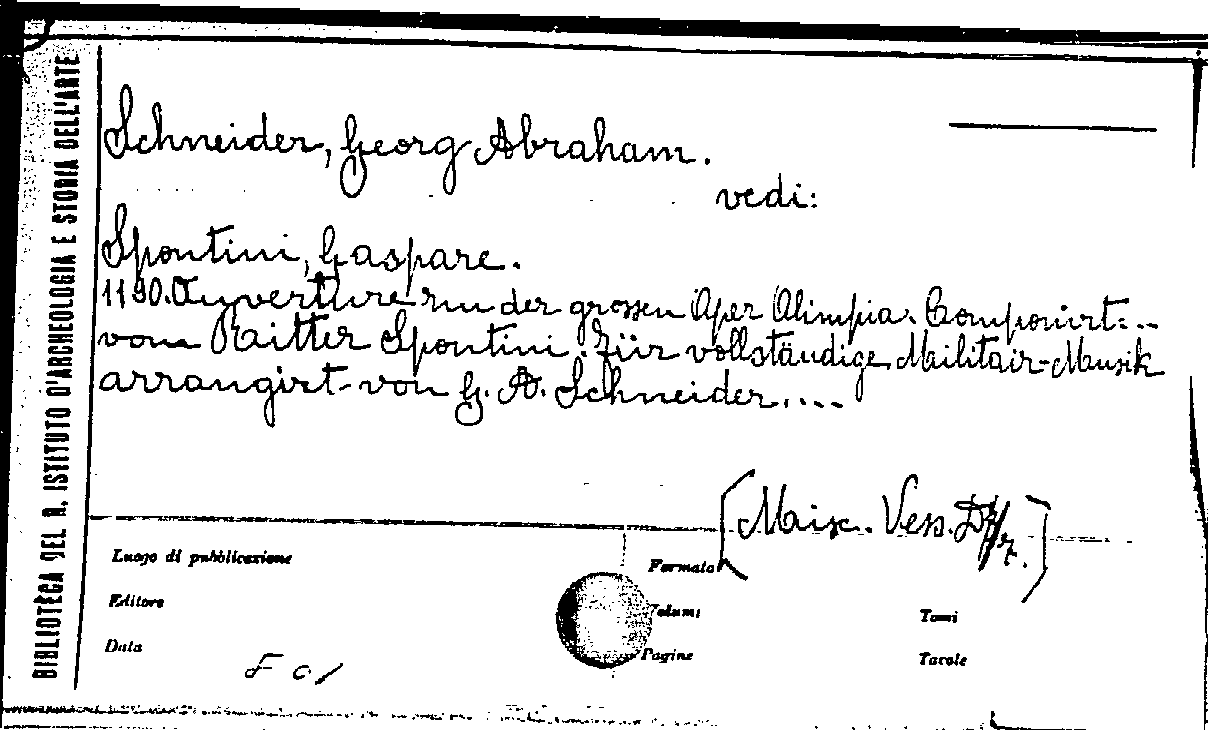 BIBLIOTECA DEL R. ISTITUTO D'ARCHEOLOGIA E STORIA DELL'ARTE
Schneider, Georg Abraham.
vedi:
Spontini, Gaspare.
1190. Ouverture zu der grossen Oper Olimpia. Componirt...
vom Ritter Spontini. Für vollständige Militair-Musik
arrangirt von G. A. Schneider....
Vess.
Luogo di pubblicazione
Formato
Editore
Volumi
Tomi
Data
Pagine
Tavole